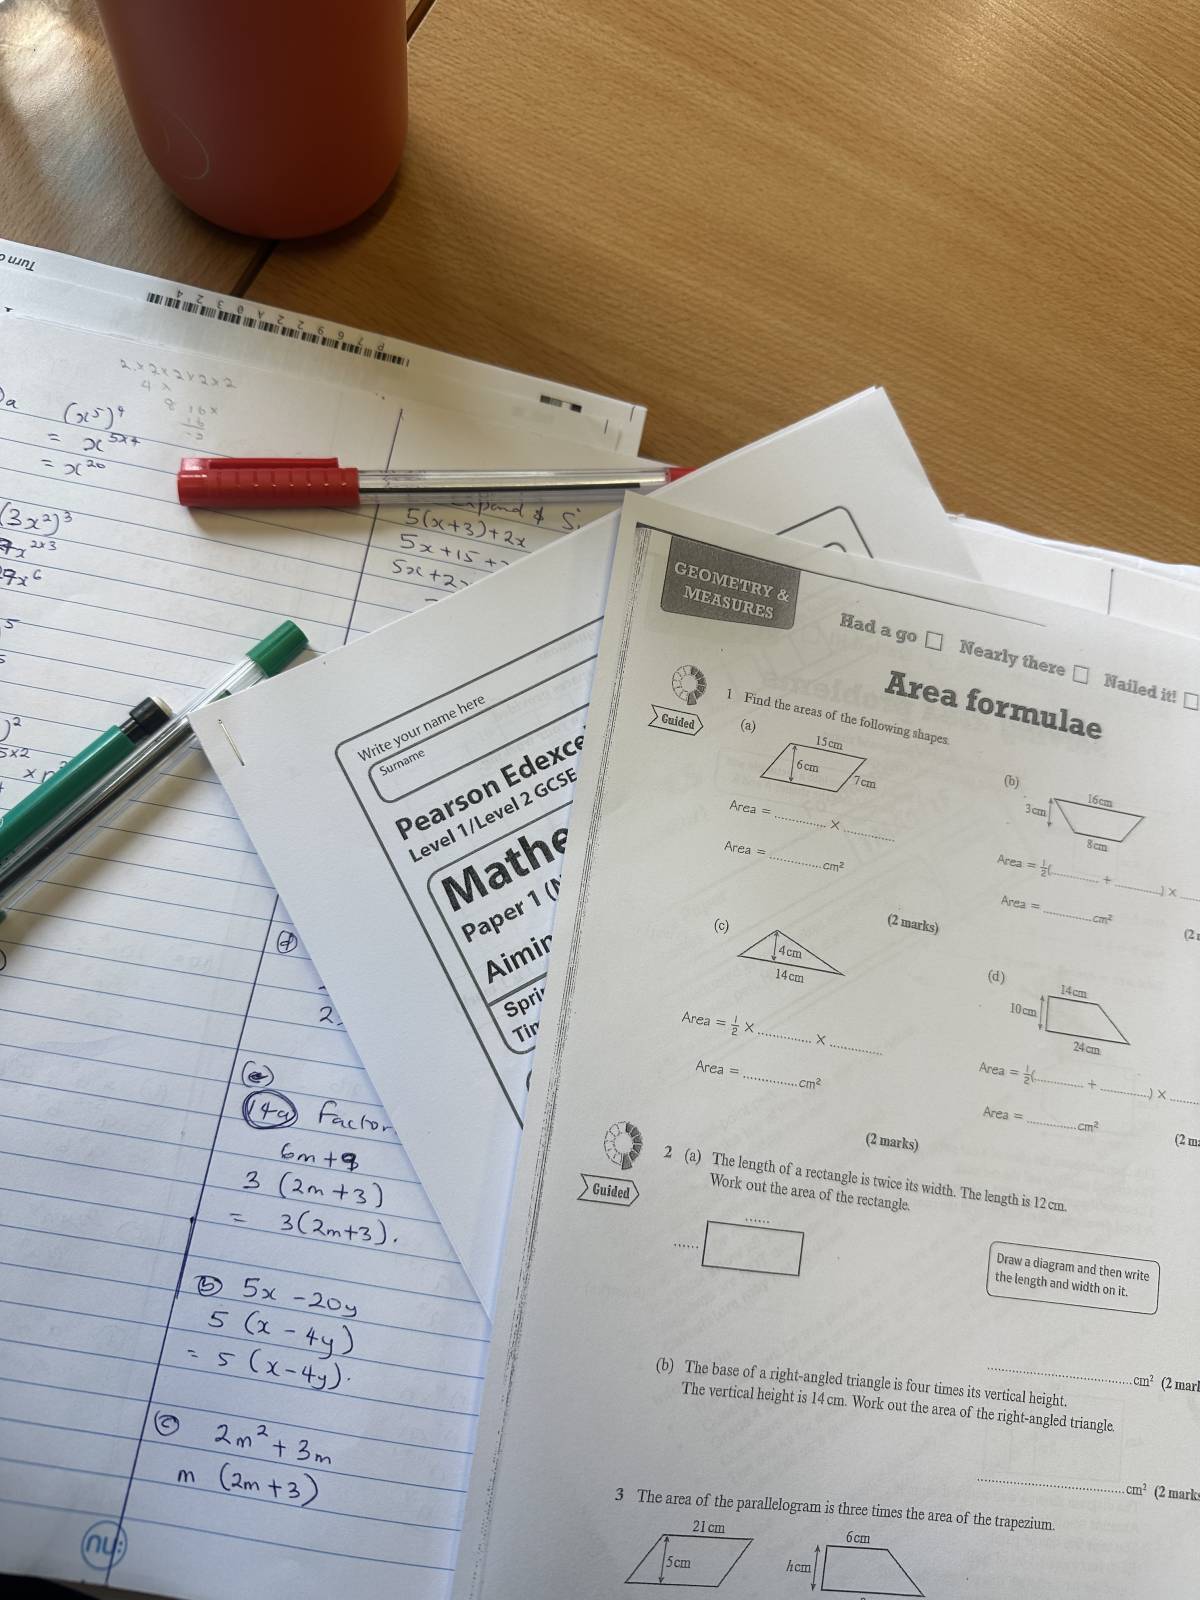 P76922A0324
2×2×2×2×2
4×
8 16×
(x⁵)⁴
= x⁵ˣ⁴
= x²⁰
(3x²)³
x²ˣ³
27x⁶
5(x+3)+2x
5x+15+
5x+2x
ⓓ
ⓔ
14a Factor
6m+9
3 (2m+3)
= 3(2m+3).
ⓑ 5x -20y
5 (x - 4y)
= 5 (x-4y).
ⓒ 2m² + 3m
m (2m+3)
nu:
Write your name here
Surname
Pearson Edexce
Level 1/Level 2 GCSE
Mathe
Paper 1 (
Aimin
Spri
GEOMETRY &
MEASURES
Had a go Nearly there Nailed it!
Area formulae
Guided
1 Find the areas of the following shapes.
(a)
15cm
6cm
7cm
Area = ............ × ............
Area = ............ cm²
(2 marks)
(b)
16cm
3cm
8cm
Area = ½(............ + ............) × ....
Area = ............ cm²
(2
(c)
4cm
14cm
Area = ½ × ............ × ............
Area = ............ cm²
(2 marks)
(d)
14cm
10cm
24cm
Area = ½(............ + ............) × ......
Area = ............ cm²
(2 m
Guided
2 (a) The length of a rectangle is twice its width. The length is 12 cm.
Work out the area of the rectangle.
......
......
Draw a diagram and then write
the length and width on it.
.............................. cm² (2 mark
(b) The base of a right-angled triangle is four times its vertical height.
The vertical height is 14 cm. Work out the area of the right-angled triangle.
.............................. cm² (2 marks
3 The area of the parallelogram is three times the area of the trapezium.
21cm
5cm
6cm
hcm